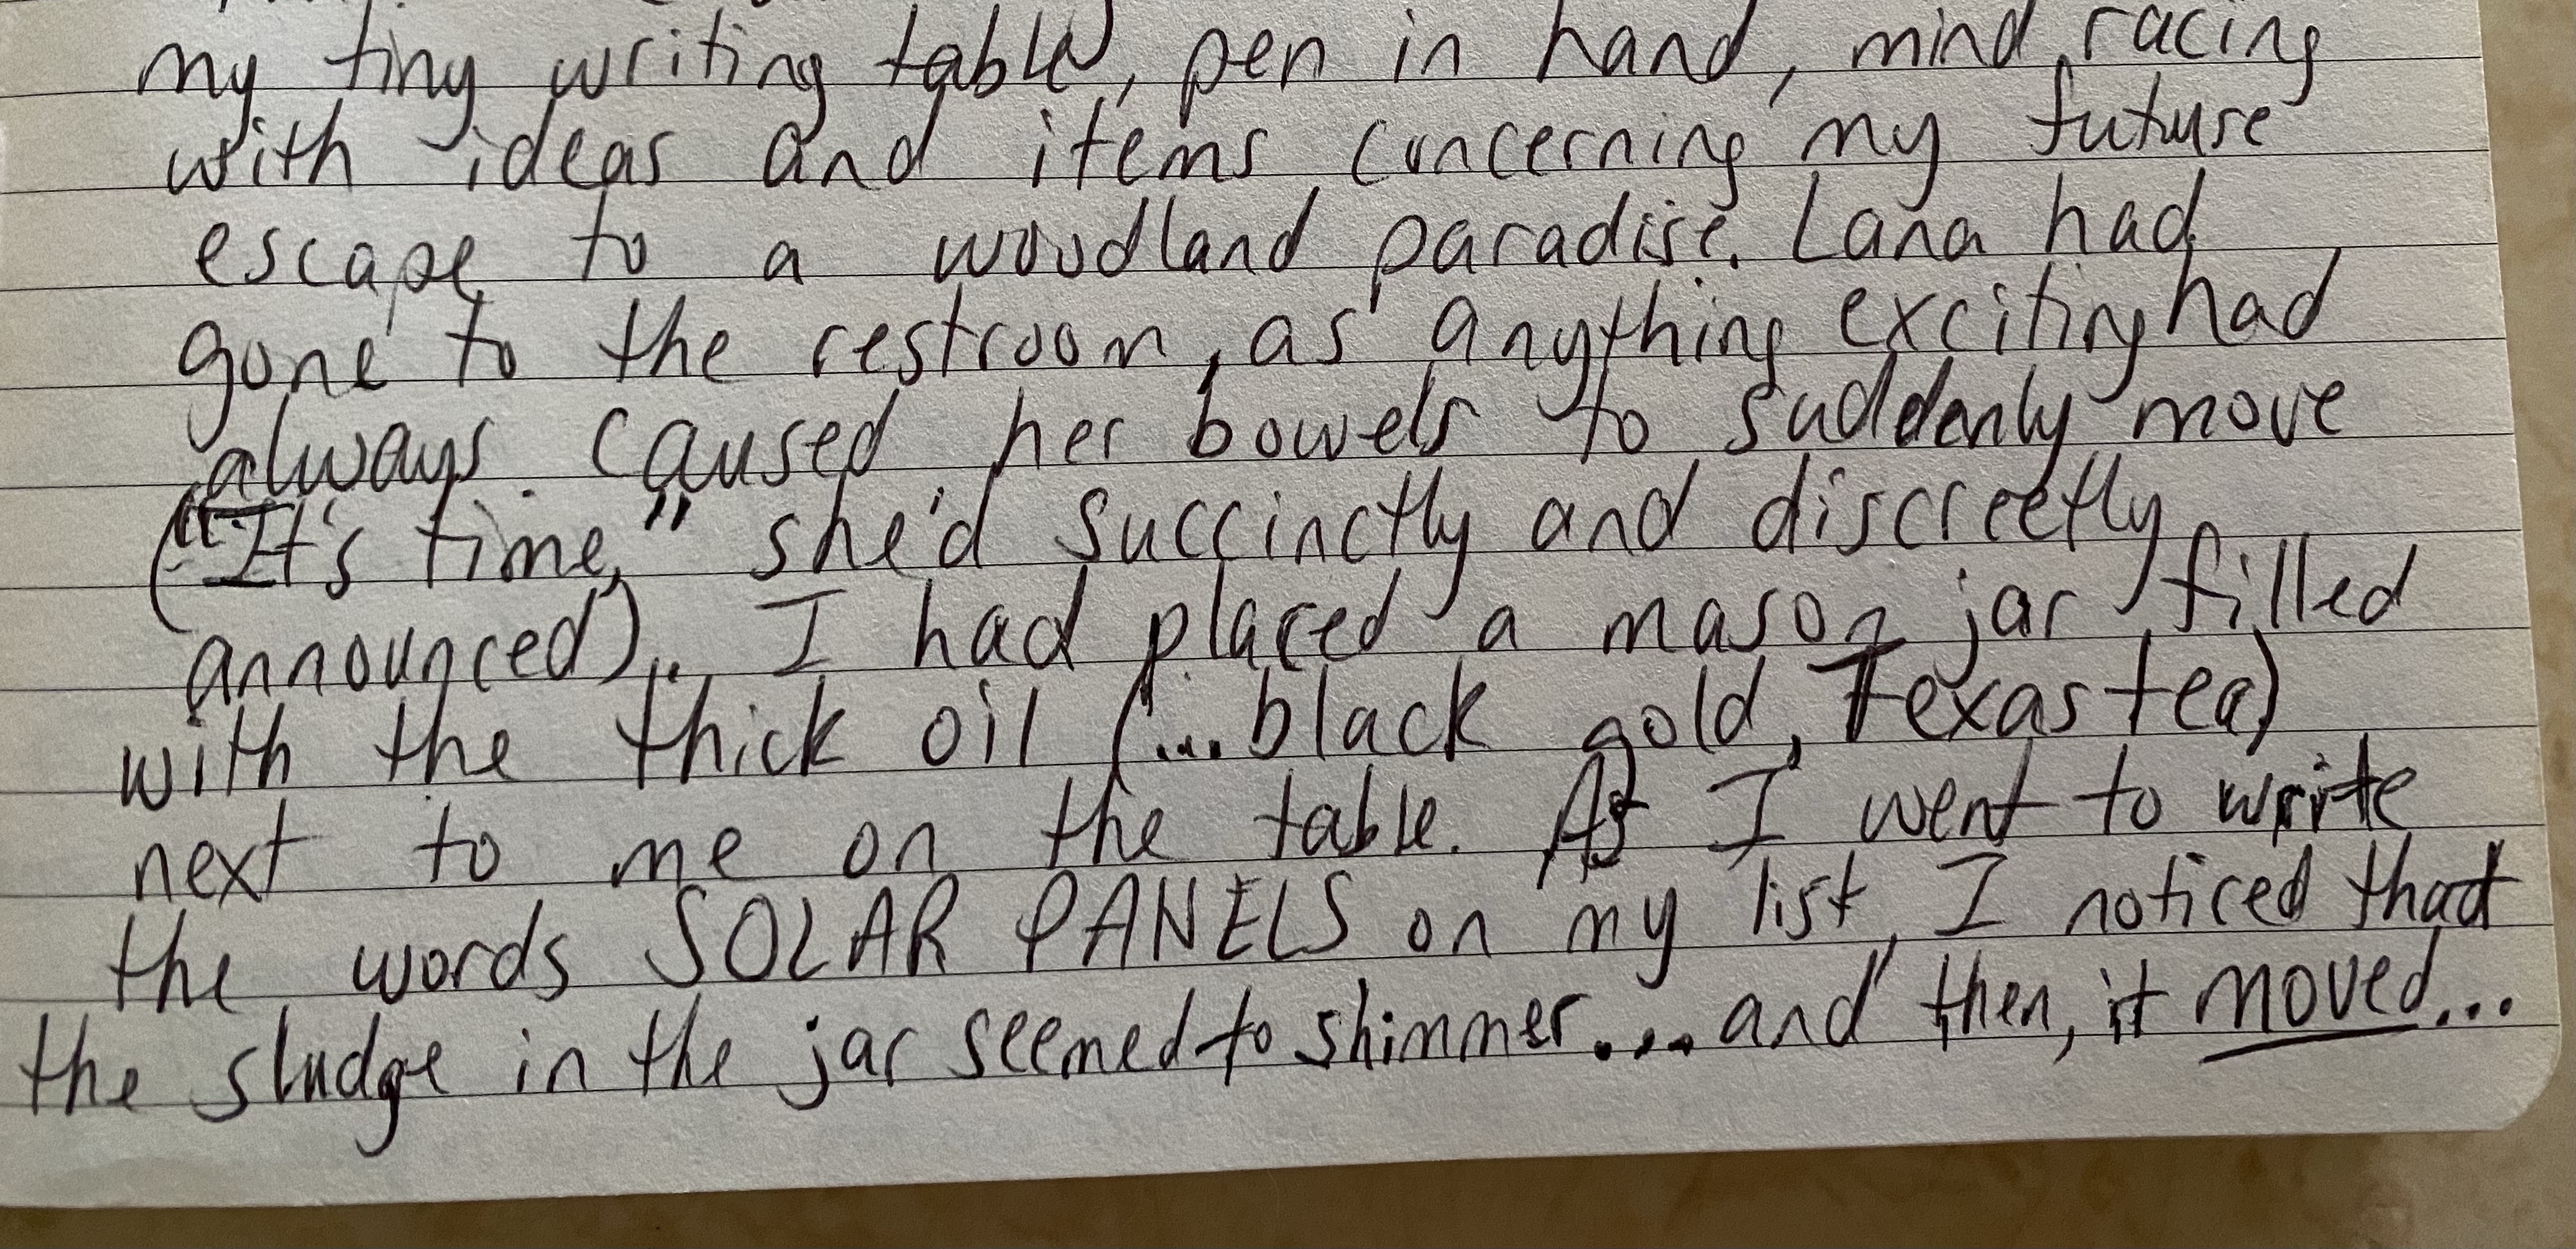 my tiny writing table, pen in hand, mind racing
with ideas and items concerning my future
escape to a woodland paradise. Lana had
gone to the restroom, as anything exciting had
always caused her bowels to suddenly move
("It's time," she'd succinctly and discreetly
announced). I had placed a mason jar filled
with the thick oil (...black gold, Texas tea)
next to me on the table. As I went to write
the words SOLAR PANELS on my list, I noticed that
the sludge in the jar seemed to shimmer... and then, it moved...